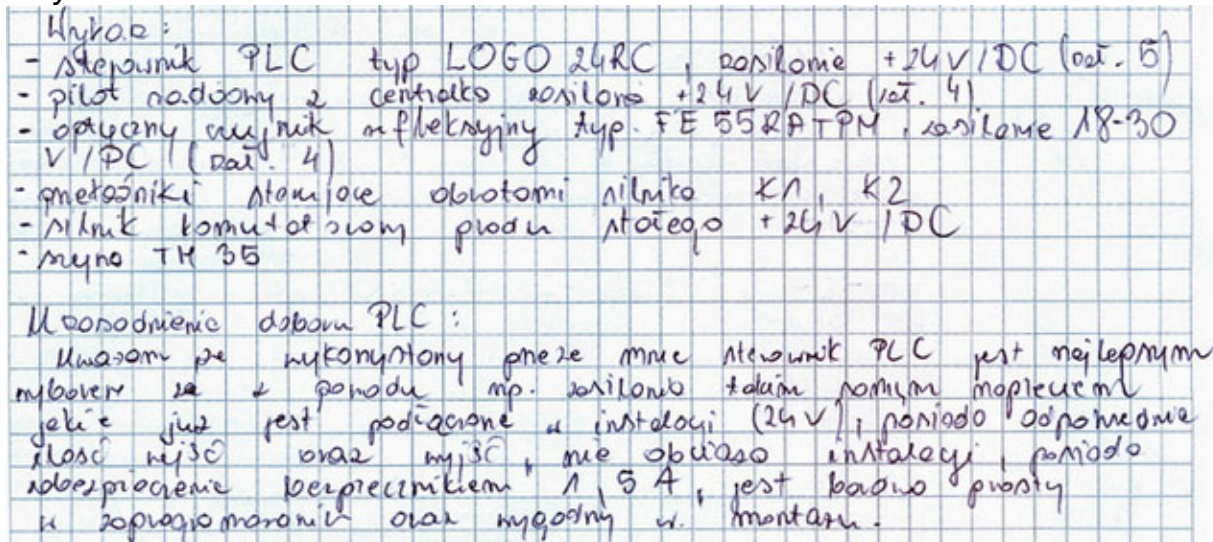 Wykaz:
- sterownik PLC typ LOGO 24RC, zasilanie +24V/DC (zał. 5)
- pilot radiowy z centralką zasilaną +24V/DC (zał. 4)
- optyczny czujnik refleksyjny typ. FE 55RATPM, zasilanie 18-30
V/DC (zał. 4)
- przekaźniki sterujące obrotami silnika K1, K2
- silnik komutatorowy prądu stałego +24V/DC
- szyna TH 35
Uzasadnienie doboru PLC:
Uważam że wykorzystany przeze mnie sterownik PLC jest najlepszym
wyborem ze z powodu np. zasilania takim samym napięciem
jakie już jest podłączone w instalacji (24V), posiada odpowiednie
ilość wejść oraz wyjść, nie obciąża instalacji, posiada
zabezpieczenie bezpiecznikiem 1,5A, jest bardzo prosty
w zaprogramowaniu oraz wygodny w. montażu.